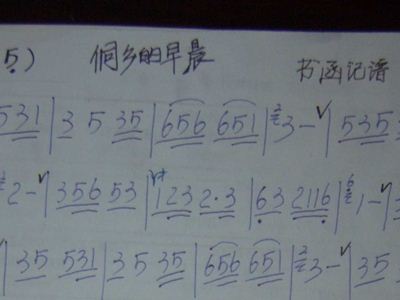 5) 侗乡的早晨
书涵记谱
531 | 3 5 35 | 656 651 | 3 - | 535
2 - | 356 53 | 123 2·3 | 63 2116 | 1 - |
| 35 531 | 3 5 35 | 656 651 | 3 - | 35